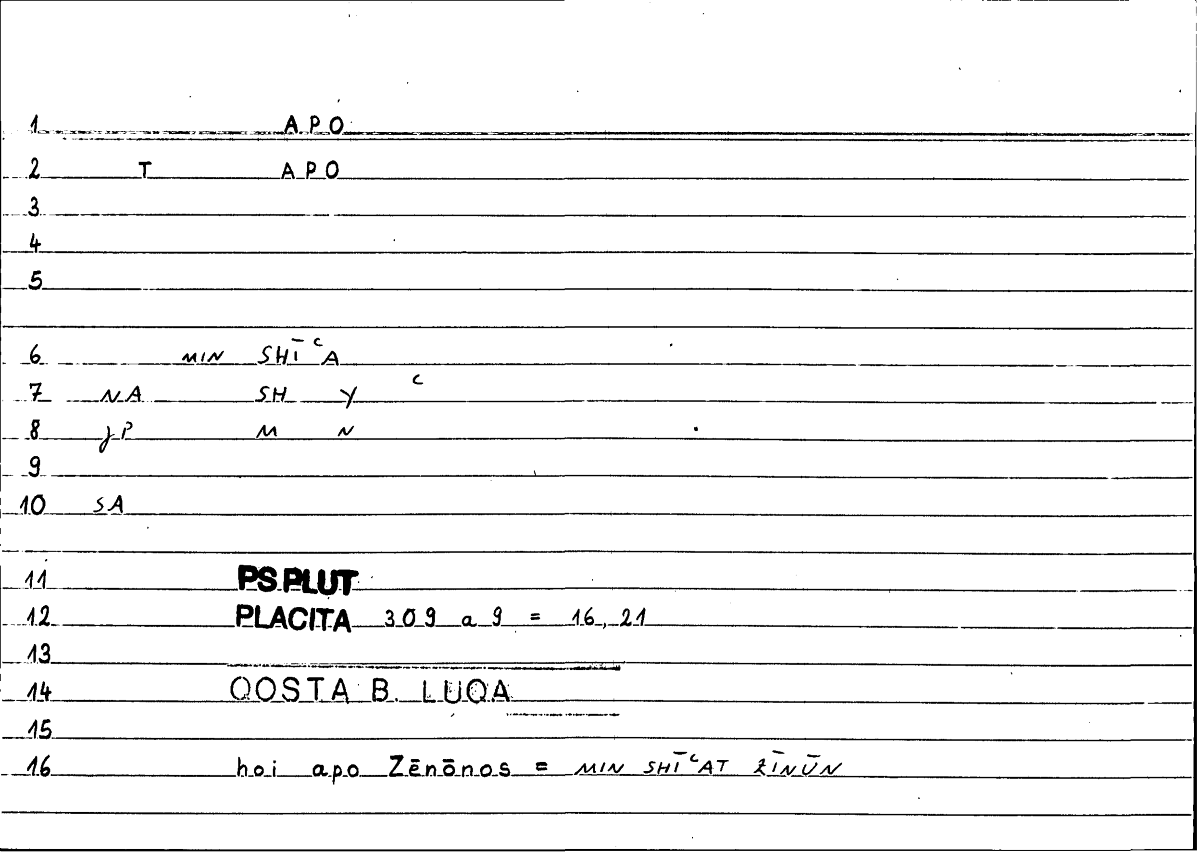 1 APO
2 T APO
3
4
5
6 MIN SHĪʿA
7 NA SH Y ʿ
8 JP M N
9
10 SA
11 PS.PLUT
12 PLACITA 309 a 9 = 16,21
13
14 QOSTA B. LUQA
15
16 hoi apo Zēnōnos = MIN SHĪʿAT ZĪNŪN